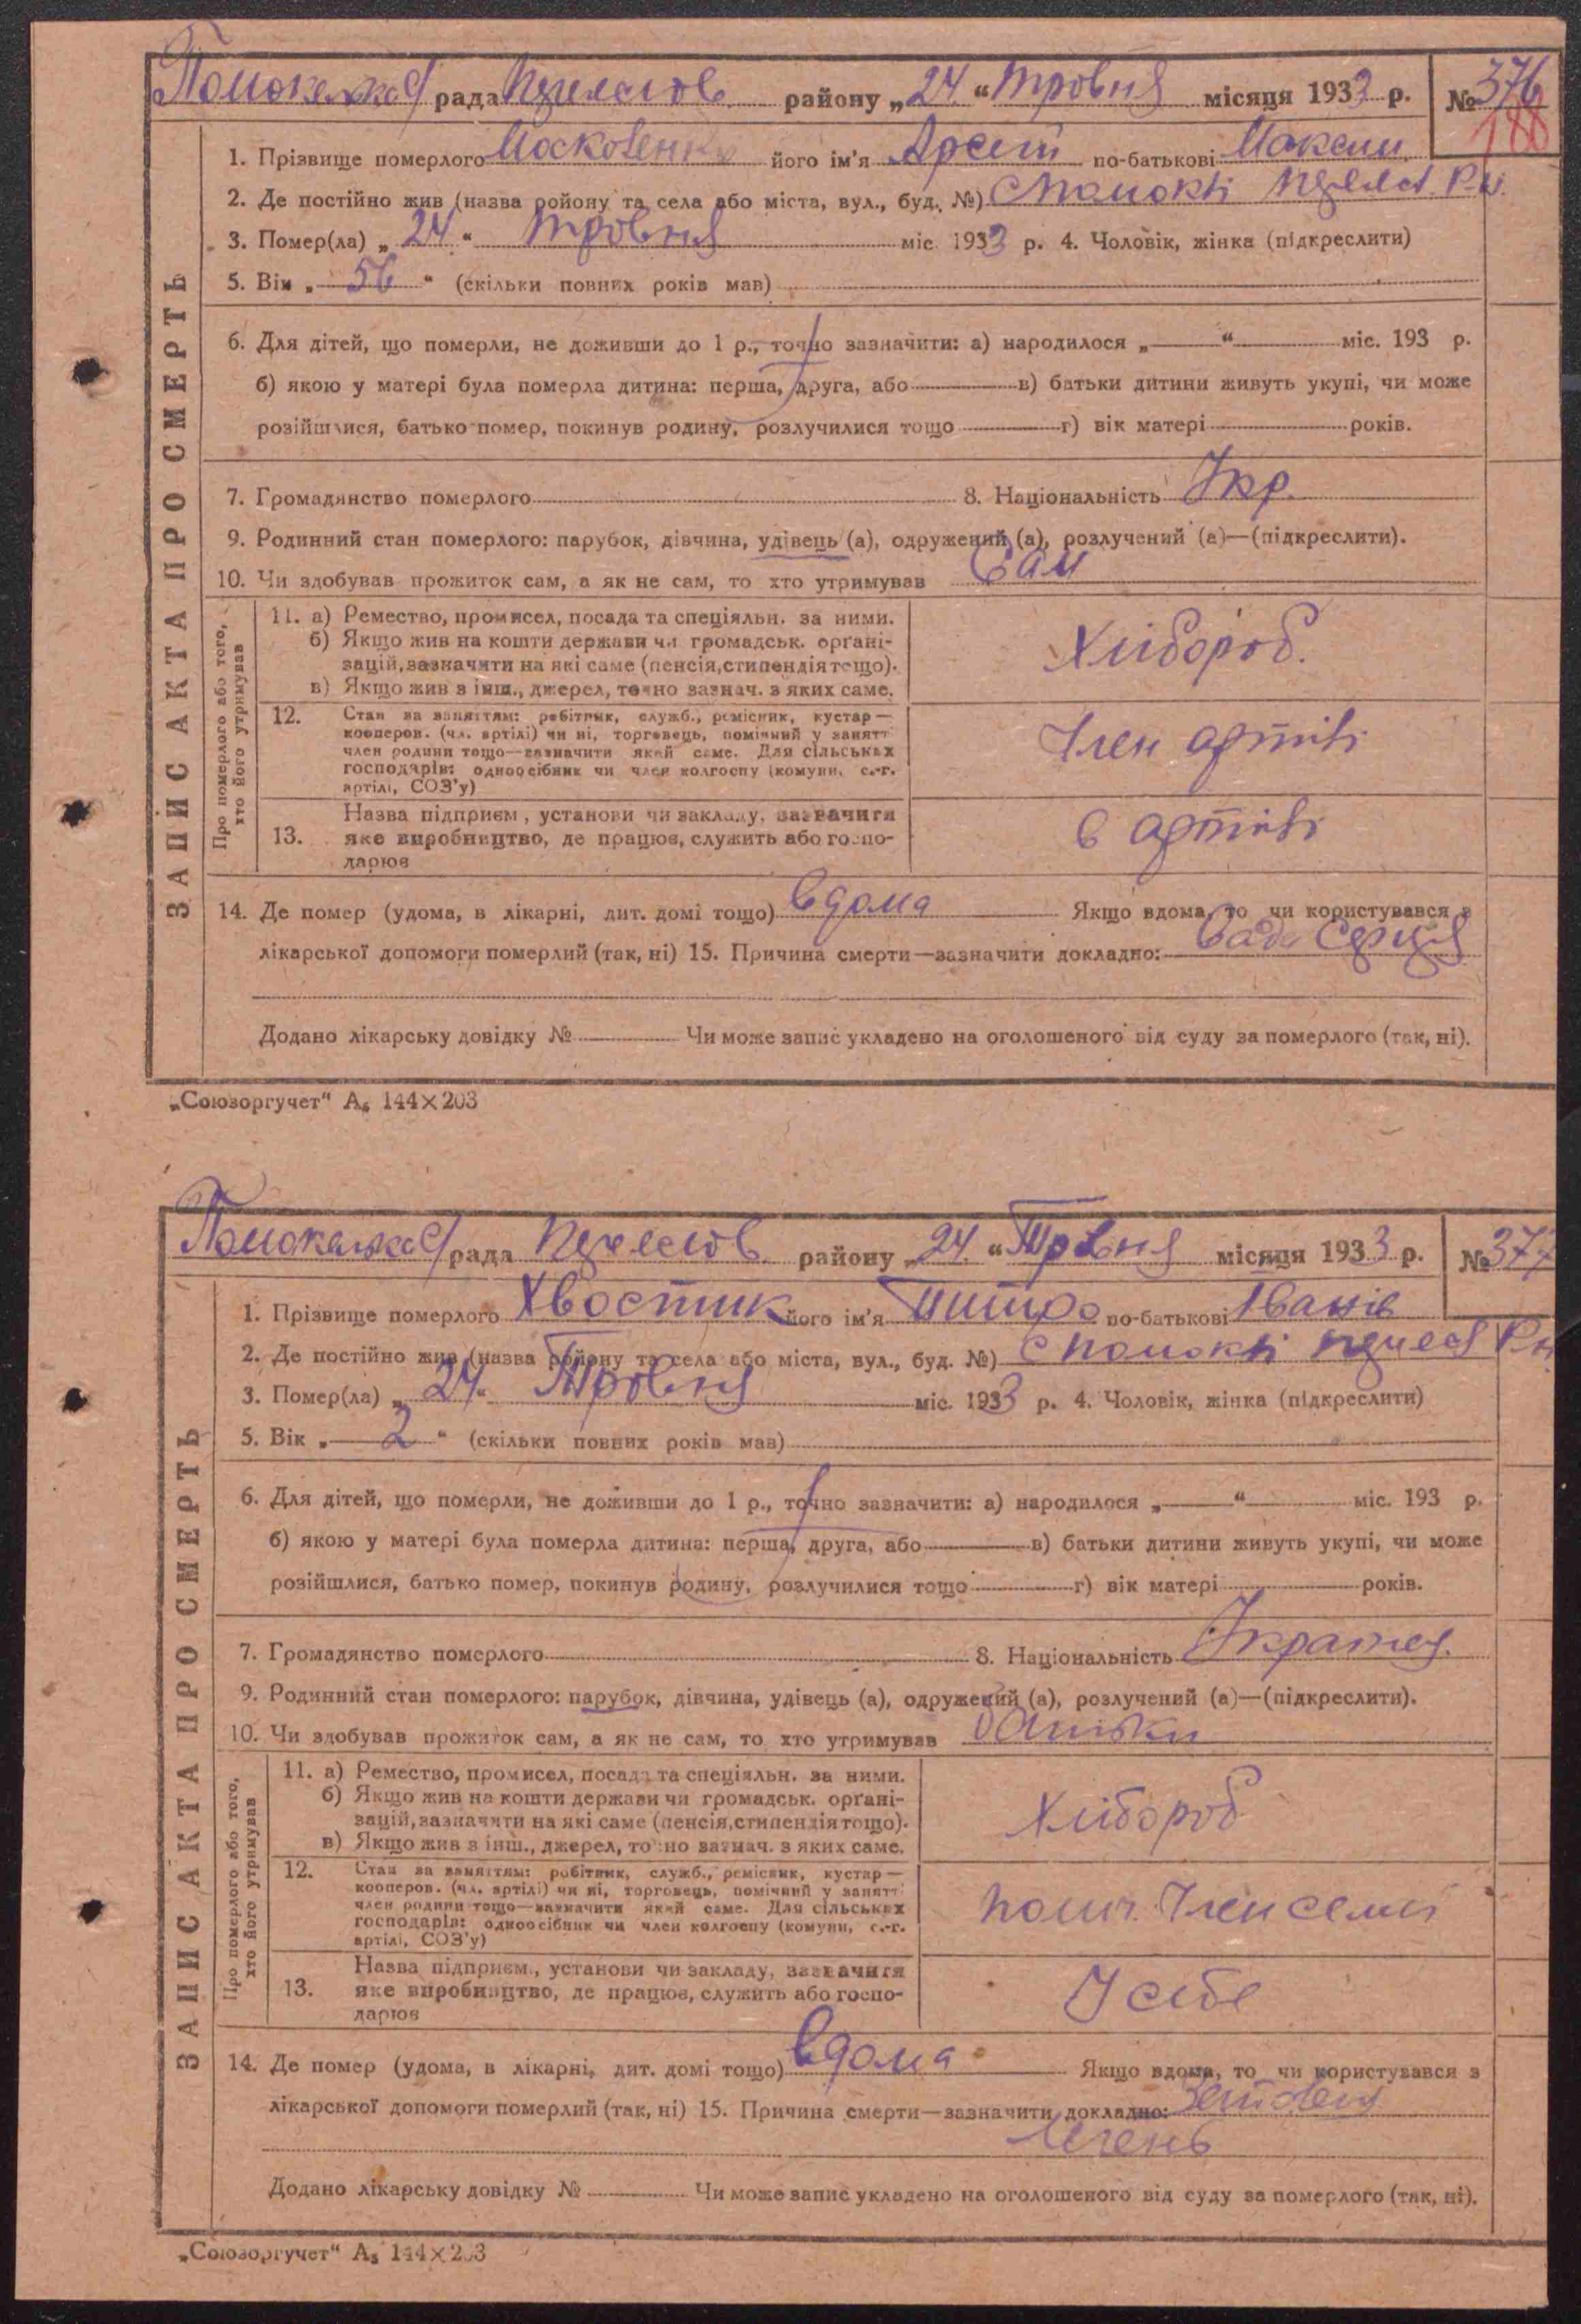 рада району „24“ тровня місяця 1933 р. № 376
188
1. Прізвище померлого Московенко його ім'я Арсет по-батькові Максим.
2. Де постійно жив (назва ройону та села або міста, вул., буд. №) с Помокні Р-н.
3. Помер(ла) „24“ тровня міс. 1933 р. 4. Чоловік, жінка (підкреслити)
5. Вік „56“ (скільки повних років мав)
6. Для дітей, що померли, не доживши до 1 р., точно зазначити: а) народилося „ “ міс. 193 р.
б) якою у матері була померла дитина: перша, друга, або в) батьки дитини живуть укупі, чи може
розійшлися, батько помер, покинув родину, розлучилися тощо г) вік матері років.
7. Громадянство померлого 8. Національність Укр.
9. Родинний стан померлого: парубок, дівчина, удівець (а), одружений (а), розлучений (а)—(підкреслити).
10. Чи здобував прожиток сам, а як не сам, то хто утримував Сам
ЗАПИС АКТА ПРО СМЕРТЬ
Про померлого або того,
хто його утримував
11. а) Ремество, промисел, посада та спеціяльн. за ними.
б) Якщо жив на кошти держави чи громадськ. орґані-
зацій, зазначити на які саме (пенсія, стипендія тощо).
в) Якщо жив з інш., джерел, точно зазнач. з яких саме.
Хлібороб.
12. Стан за заняттям: робітник, служб., ремісник, кустар —
кооперов. (чл. артілі) чи ні, торговець, помічний у занятт
член родини тощо—зазначити який саме. Для сільських
господарів: одноосібник чи член колгоспу (комуни, с.-г.
артілі, СОЗ'у)
Член артілі
13. Назва підприєм., установи чи закладу, зазначити
яке виробництво, де працює, служить або госпо-
дарює
в артілі
14. Де помер (удома, в лікарні, дит. домі тощо) вдома Якщо вдома, то чи користувався з
лікарської допомоги померлий (так, ні) 15. Причина смерти—зазначити докладно: Вада Серця
Додано лікарську довідку № Чи може запис укладено на оголошеного від суду за померлого (так, ні).
„Союзоргучет“ А₅ 144×203
рада району „24.“ Тровня місяця 1933 р. № 377
1. Прізвище померлого Хвостик його ім'я Митро по-батькові Іванів
2. Де постійно жив (назва ройону та села або міста, вул., буд. №) с Помокні Р-н.
3. Помер(ла) „24“ Тровня міс. 1933 р. 4. Чоловік, жінка (підкреслити)
5. Вік „2“ (скільки повних років мав)
6. Для дітей, що померли, не доживши до 1 р., точно зазначити: а) народилося „ “ міс. 193 р.
б) якою у матері була померла дитина: перша, друга, або в) батьки дитини живуть укупі, чи може
розійшлися, батько помер, покинув родину, розлучилися тощо г) вік матері років.
7. Громадянство померлого 8. Національність
9. Родинний стан померлого: парубок, дівчина, удівець (а), одружений (а), розлучений (а)—(підкреслити).
10. Чи здобував прожиток сам, а як не сам, то хто утримував батьки
ЗАПИС АКТА ПРО СМЕРТЬ
Про померлого або того,
хто його утримував
11. а) Ремество, промисел, посада та спеціяльн. за ними.
б) Якщо жив на кошти держави чи громадськ. орґані-
зацій, зазначити на які саме (пенсія, стипендія тощо).
в) Якщо жив з інш., джерел, точно зазнач. з яких саме.
Хлібороб
12. Стан за заняттям: робітник, служб., ремісник, кустар —
кооперов. (чл. артілі) чи ні, торговець, помічний у занятт
член родини тощо—зазначити який саме. Для сільських
господарів: одноосібник чи член колгоспу (комуни, с.-г.
артілі, СОЗ'у)
поміч. Член семї
13. Назва підприєм., установи чи закладу, зазначити
яке виробництво, де працює, служить або госпо-
дарює
У себе
14. Де помер (удома, в лікарні, дит. домі тощо) вдома Якщо вдома, то чи користувався з
лікарської допомоги померлий (так, ні) 15. Причина смерти—зазначити докладно:
легень
Додано лікарську довідку № Чи може запис укладено на оголошеного від суду за померлого (так, ні).
„Союзоргучет“ А₅ 144×203